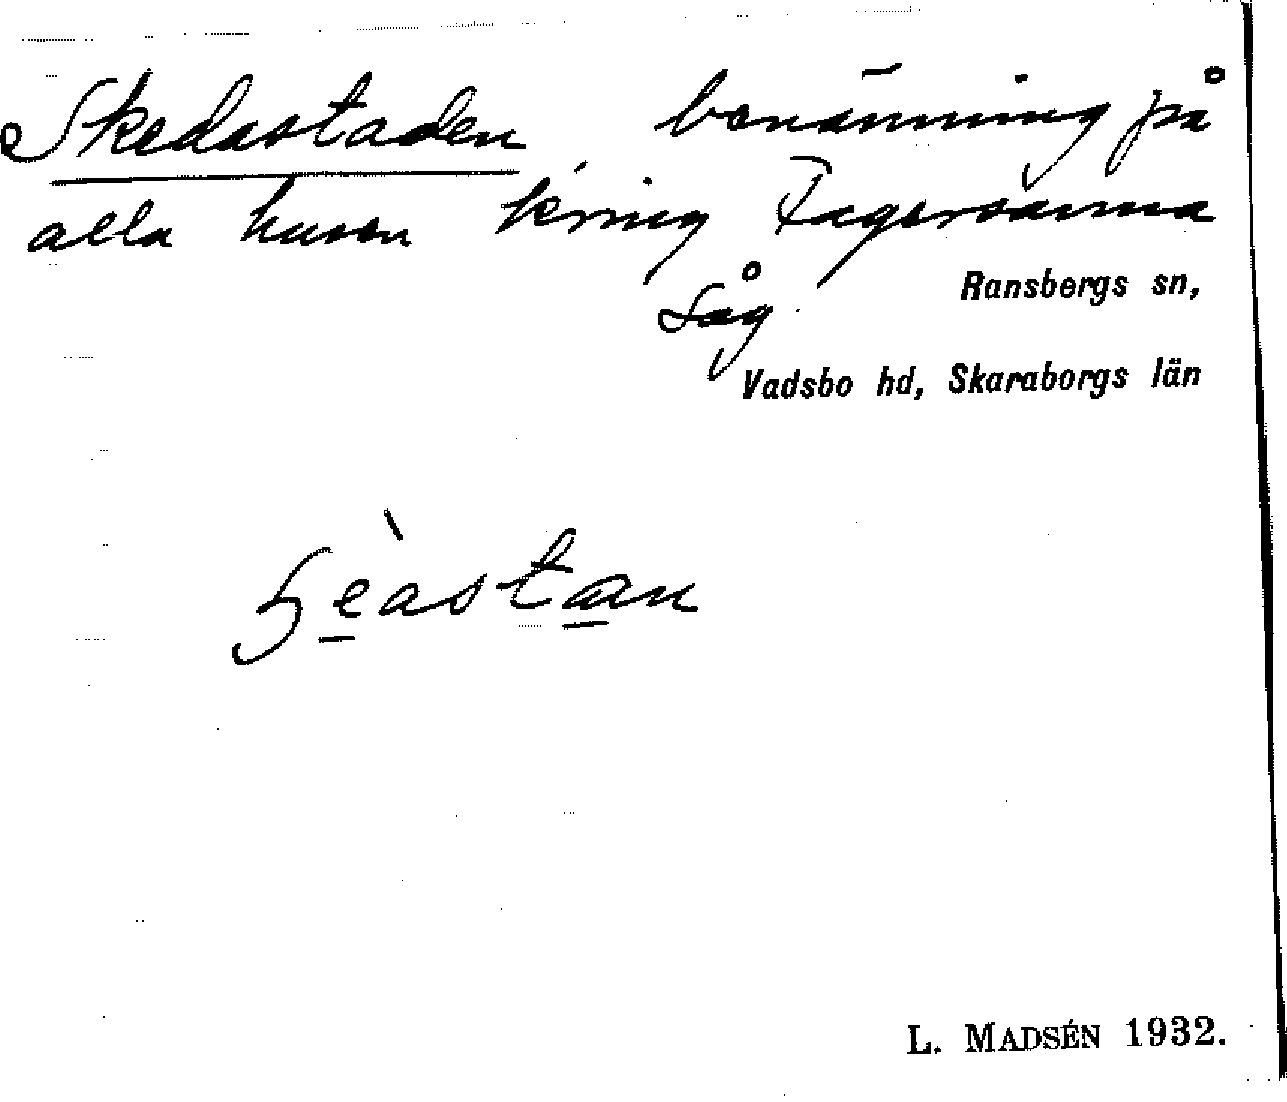 Skedastaden benämning på
alla husen kring Fagersanna
Såg
Ransbergs sn,
Vadsbo hd, Skaraborgs län
L. MADSÉN 1932.